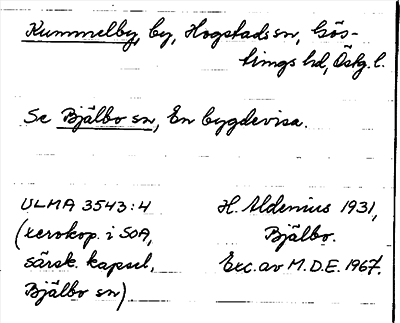 Kummelby, by, Hogstads sn, Gös-
tings hd, Östg. l.
Se Bjälbo sn, En bygdevisa.
ULMA 3543:4
(xerokop. i SOA,
särsk. kapsel,
Bjälbo sn)
H. Aldenius 1931,
Bjälbo.
Exc. av M.D.E. 1967.